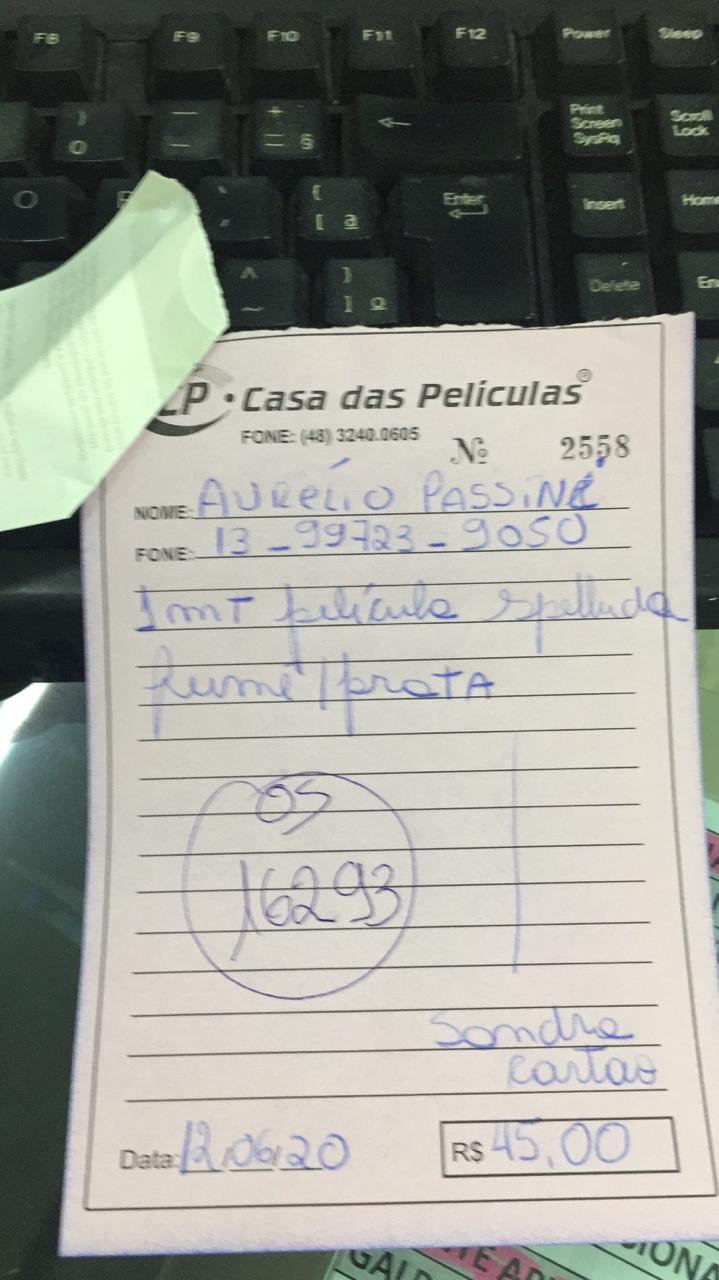 F8 F9 F10 F11 F12 Power Sleep
) 0 — – + = § ← Print Screen SysRq Scroll Lock
O P ` ´ { [ ª Enter Insert Home
^ ~ } ] º Delete End
CP · Casa das Películas®
FONE: (48) 3240.0605
Nº 2558
NOME: AURÉLIO PASSINE
FONE: 13-99723-9050
1 mT película espelhada
fumê/prata
OS
16293
Sandra
cartão
Data: 12,06,20
R$ 45,00